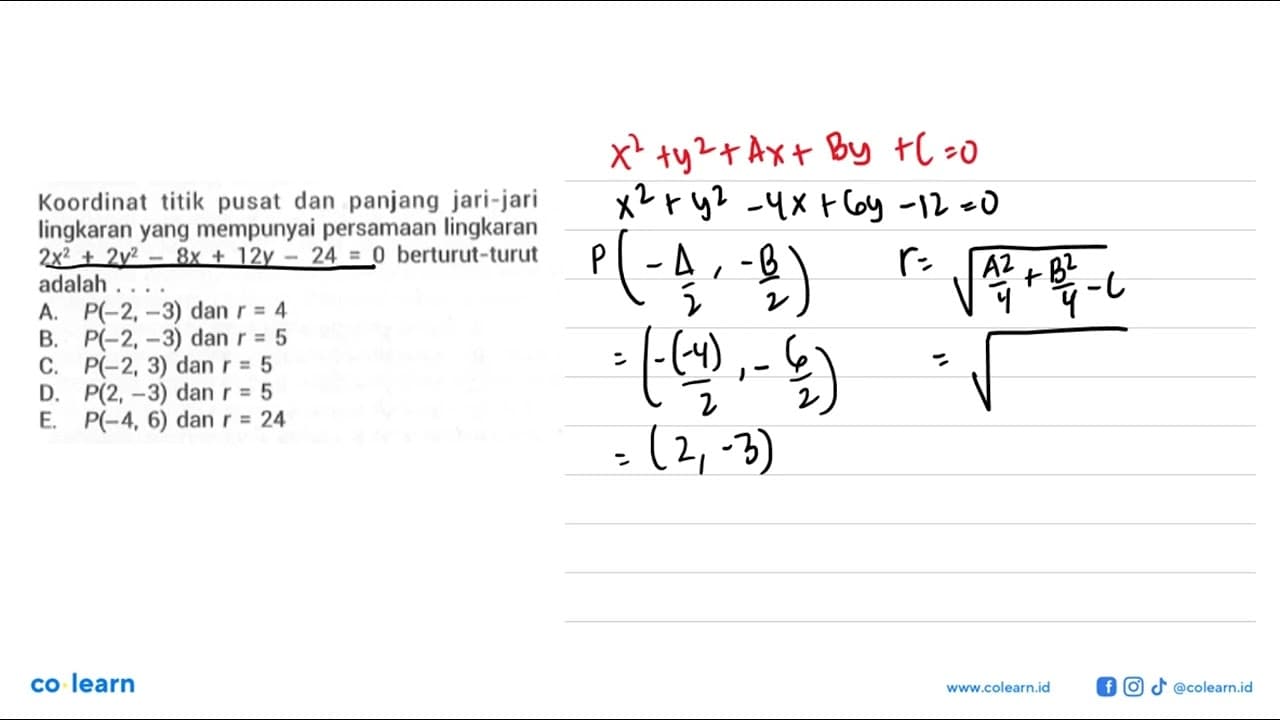 Koordinat titik pusat dan panjang jari-jari
lingkaran yang mempunyai persamaan lingkaran
2x² + 2y² – 8x + 12y – 24 = 0 berturut-turut
adalah . . . .
A. P(–2, –3) dan r = 4
B. P(–2, –3) dan r = 5
C. P(–2, 3) dan r = 5
D. P(2, –3) dan r = 5
E. P(–4, 6) dan r = 24
x² + y² + Ax + By + C = 0
x² + y² – 4x + 6y – 12 = 0
P(–A/2, –B/2)
= (–(–4)/2, –6/2)
= (2, –3)
r = √(A²/4 + B²/4 – C)
= √
co learn
www.colearn.id
@colearn.id